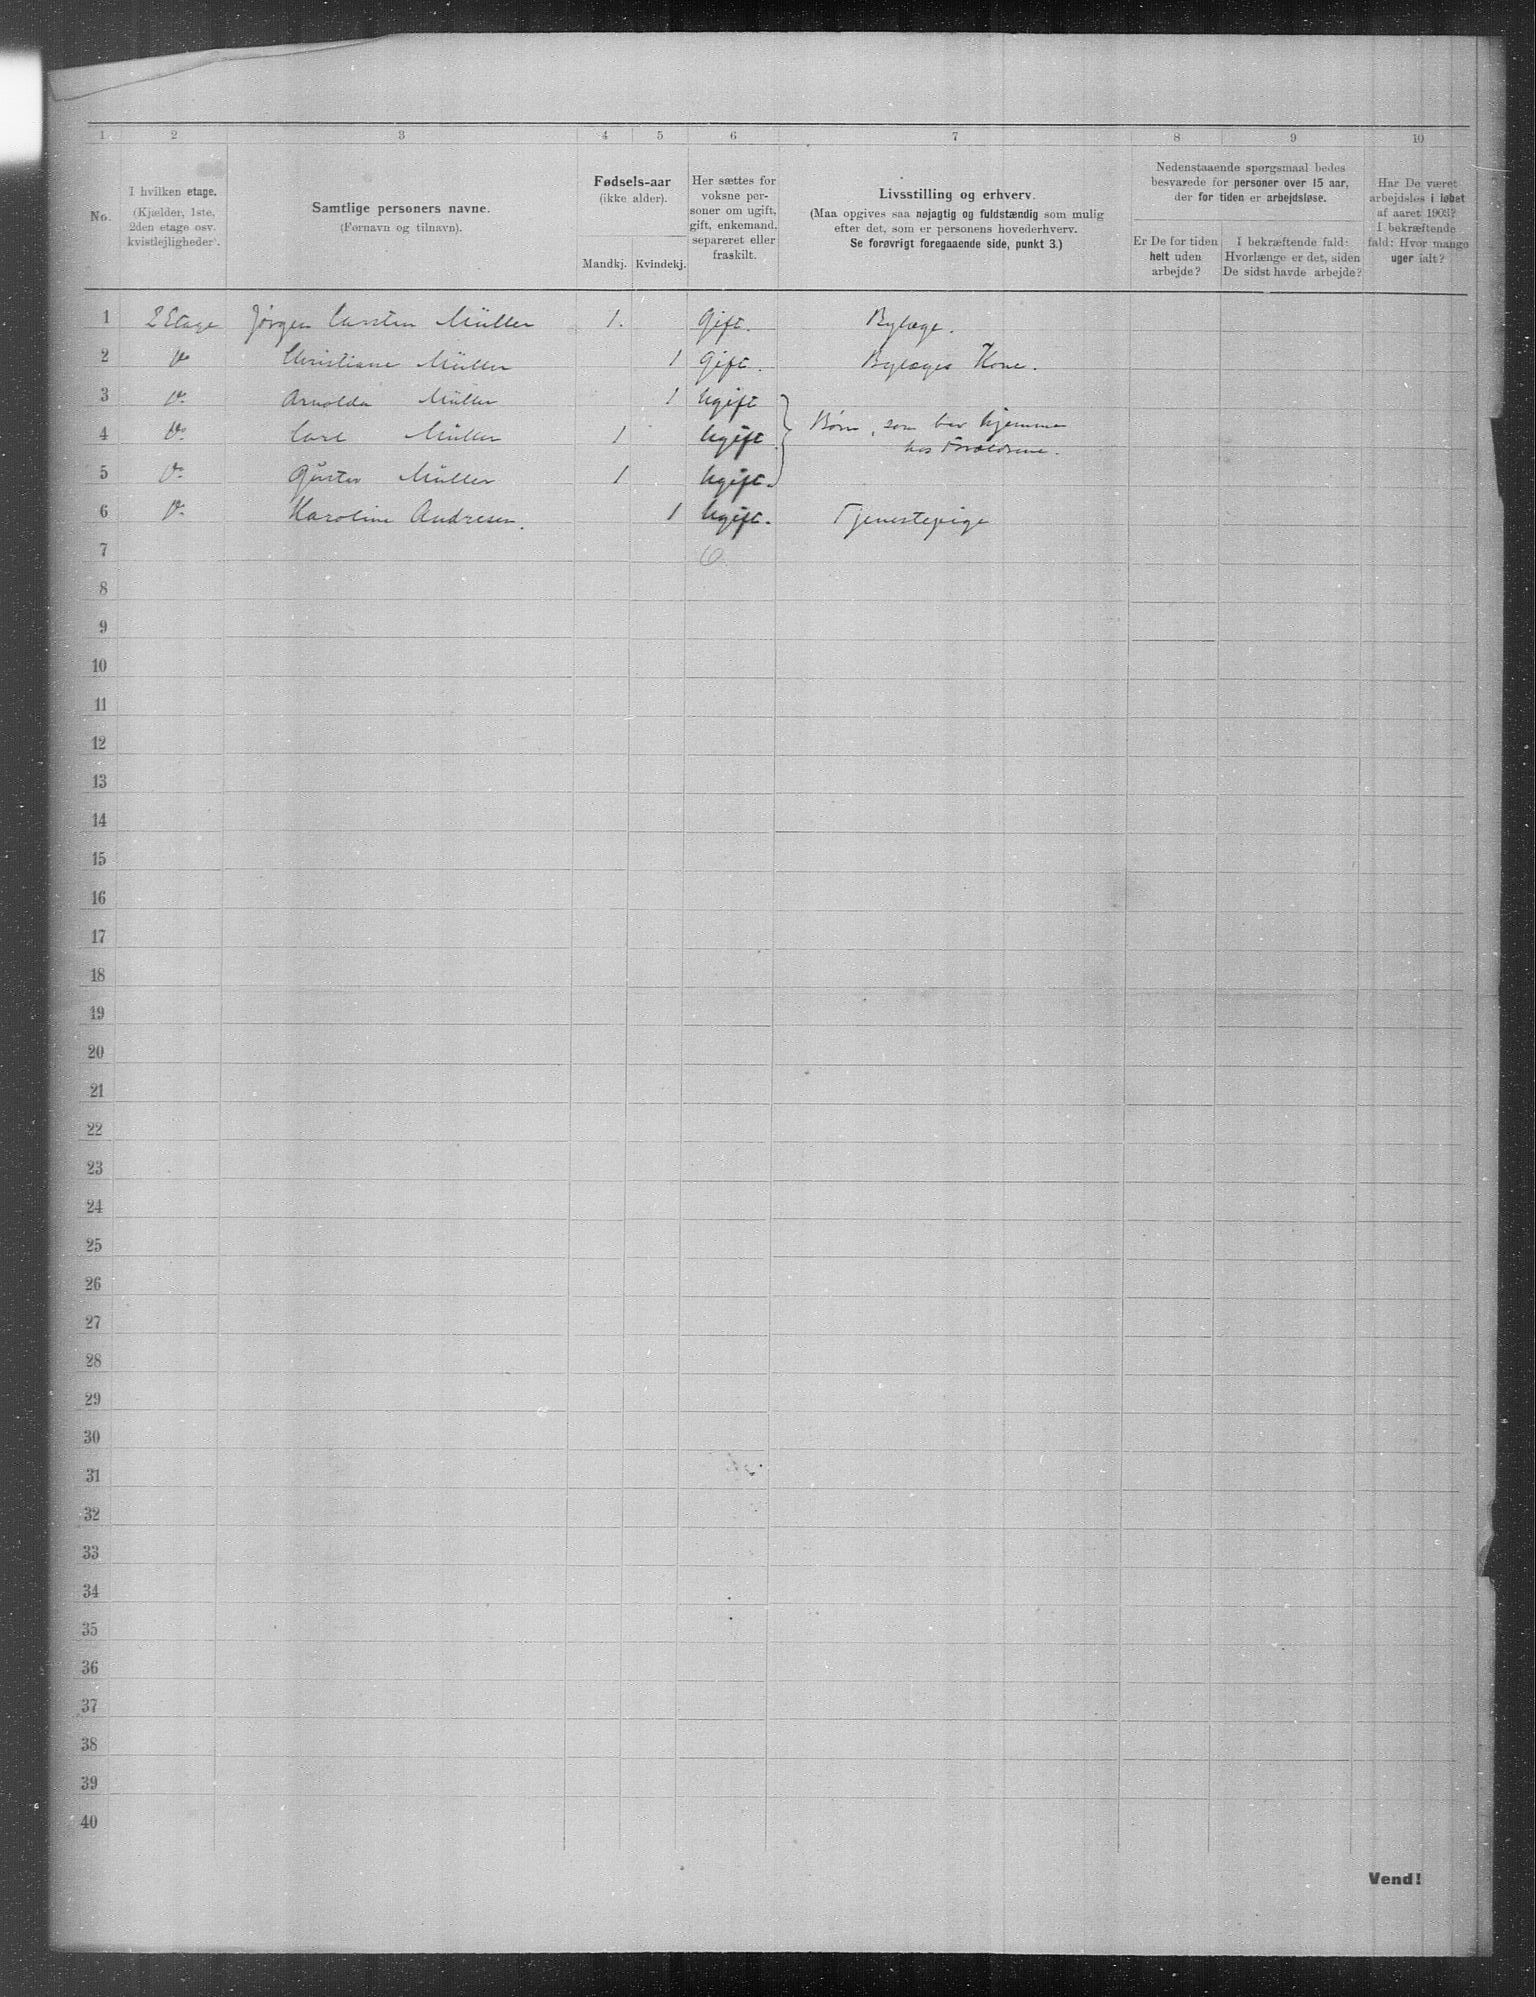 1 2 3 4 5 6 7 8 9 10
No.
I hvilken etage.
(Kjælder, 1ste,
2den etage osv.
kvistlejligheder).
Samtlige personers navne.
(Fornavn og tilnavn).
Fødsels-aar
(ikke alder).
Mandkj. Kvindekj.
Her sættes for
voksne per-
soner om ugift,
gift, enkemand,
separeret eller
fraskilt.
Livsstilling og erhverv.
(Maa opgives saa nøjagtig og fuldstændig som mulig
efter det, som er personens hovederhverv.
Se forøvrigt foregaaende side, punkt 3.)
Nedenstaaende spørgsmaal bedes
besvarede for personer over 15 aar,
der for tiden er arbejdsløse.
Er De for tiden
helt uden
arbejde?
I bekræftende fald:
Hvorlænge er det, siden
De sidst havde arbejde?
Har De været
arbejdsløs i løbet
af aaret 1903?
I bekræftende
fald: Hvor mange
uger ialt?
1 2 Etage Jørgen Carsten Müller 1. Gift. Bylæge.
2 Do Christiane Müller 1 Gift. Bylæges Kone.
3 Do Arnolda Müller 1 Ugift
4 Do Carl Müller 1 Ugift. Børn, som bor hjemme
hos Forældrene.
5 Do Gustav Müller 1 Ugift.
6 Do Karoline Andresen. 1 Ugift. Tjenestepige
7 6
8
9
10
11
12
13
14
15
16
17
18
19
20
21
22
23
24
25
26
27
28
29
30
31
32
33
34
35
36
37
38
39
40
Vend!